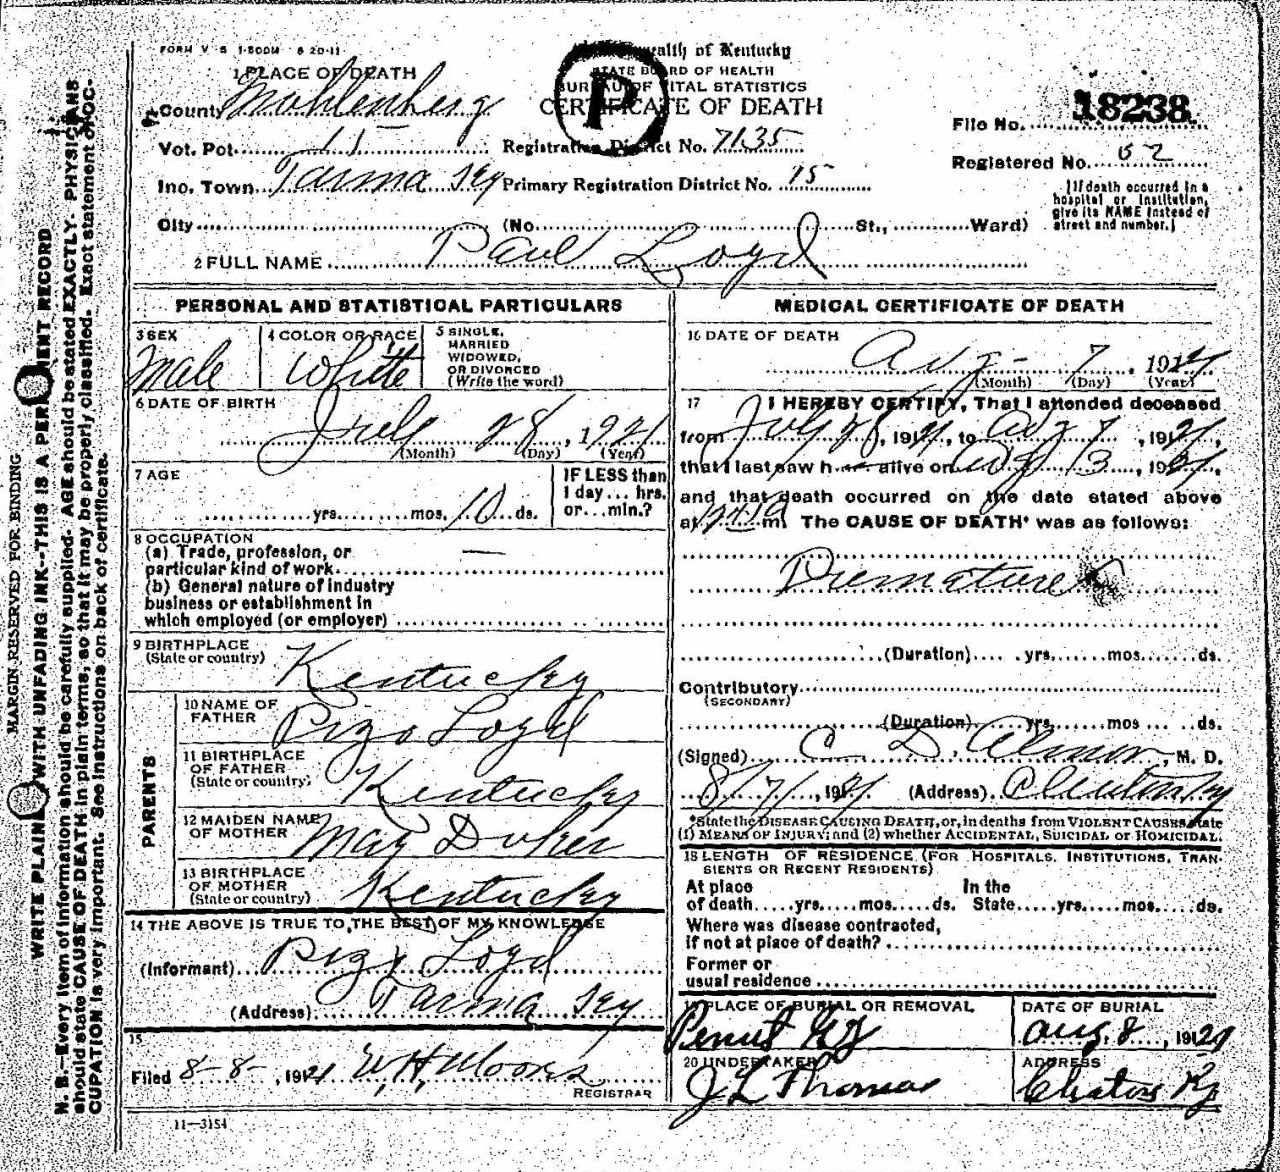 FORM V S 1-500M 8 20-11
wealth of Kentucky
STATE BOARD OF HEALTH
BUREAU OF VITAL STATISTICS
CERTIFICATE OF DEATH
P
1 PLACE OF DEATH
County Mohlenberg
Vot. Pct. 15 Registration District No. 7135
Inc. Town Tarma Ky Primary Registration District No. 15
City (No. St., Ward)
File No. 18238
Registered No. 62
[If death occurred in a
hospital or institution,
give its NAME instead of
street and number.]
2 FULL NAME Paul Loyd
PERSONAL AND STATISTICAL PARTICULARS
3 SEX
Male
4 COLOR OR RACE
White
5 SINGLE,
MARRIED
WIDOWED,
OR DIVORCED
(Write the word)
6 DATE OF BIRTH
July 28, 1921
(Month) (Day) (Year)
7 AGE
yrs. mos. 10 ds.
IF LESS than
1 day... hrs.
or...min.?
8 OCCUPATION
(a) Trade, profession, or
particular kind of work
(b) General nature of industry
business or establishment in
which employed (or employer)
9 BIRTHPLACE
(State or country) Kentucky
PARENTS
10 NAME OF
FATHER Pizo Loyd
11 BIRTHPLACE
OF FATHER
(State or country) Kentucky
12 MAIDEN NAME
OF MOTHER May Duker
13 BIRTHPLACE
OF MOTHER
(State or country) Kentucky
14 THE ABOVE IS TRUE TO THE BEST OF MY KNOWLEDGE
(Informant) Pizo Loyd
(Address) Tarma Ky
15
Filed 8-8-, 1921 W.H. Moores
REGISTRAR
11-3154
MEDICAL CERTIFICATE OF DEATH
16 DATE OF DEATH
Aug - 7, 1921
(Month) (Day) (Year)
17 I HEREBY CERTIFY, That I attended deceased
from July 28, 1921, to Aug 7, 1921,
that I last saw h alive on Aug 3, 1921,
and that death occurred on the date stated above
at m. The CAUSE OF DEATH* was as follows:
Premature
(Duration) yrs. mos. ds.
Contributory
(SECONDARY)
(Duration) yrs. mos. ds.
(Signed) C D, M. D.
8/7/, 1921 (Address) Ky
*State the DISEASE CAUSING DEATH, or, in deaths from VIOLENT CAUSES state
(1) MEANS OF INJURY; and (2) whether ACCIDENTAL, SUICIDAL or HOMICIDAL.
18 LENGTH OF RESIDENCE (FOR HOSPITALS, INSTITUTIONS, TRAN-
SIENTS OR RECENT RESIDENTS)
At place In the
of death.....yrs.....mos.....ds. State.....yrs.....mos.....ds.
Where was disease contracted,
if not at place of death?
Former or
usual residence
19 PLACE OF BURIAL OR REMOVAL
Penut Ky
DATE OF BURIAL
Aug. 8, 1921
20 UNDERTAKER
J L Thomas
ADDRESS
Ky
MARGIN RESERVED FOR BINDING
WRITE PLAINLY WITH UNFADING INK--THIS IS A PERMANENT RECORD
N. B.-Every item of information should be carefully supplied. AGE should be stated EXACTLY. PHYSICIANS
should state CAUSE OF DEATH in plain terms, so that it may be properly classified. Exact statement of OC-
CUPATION is very important. See instructions on back of certificate.